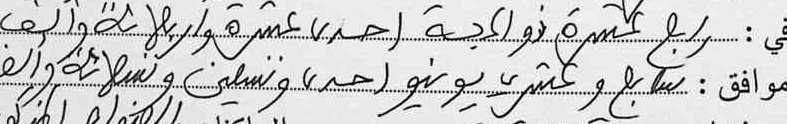 في : رابع عشرة ذو الحجة احدى عشرة واربعمائة وألف
موافق : سابع و عشرين يونيو احدى وتسعين وتسعمائة وألف